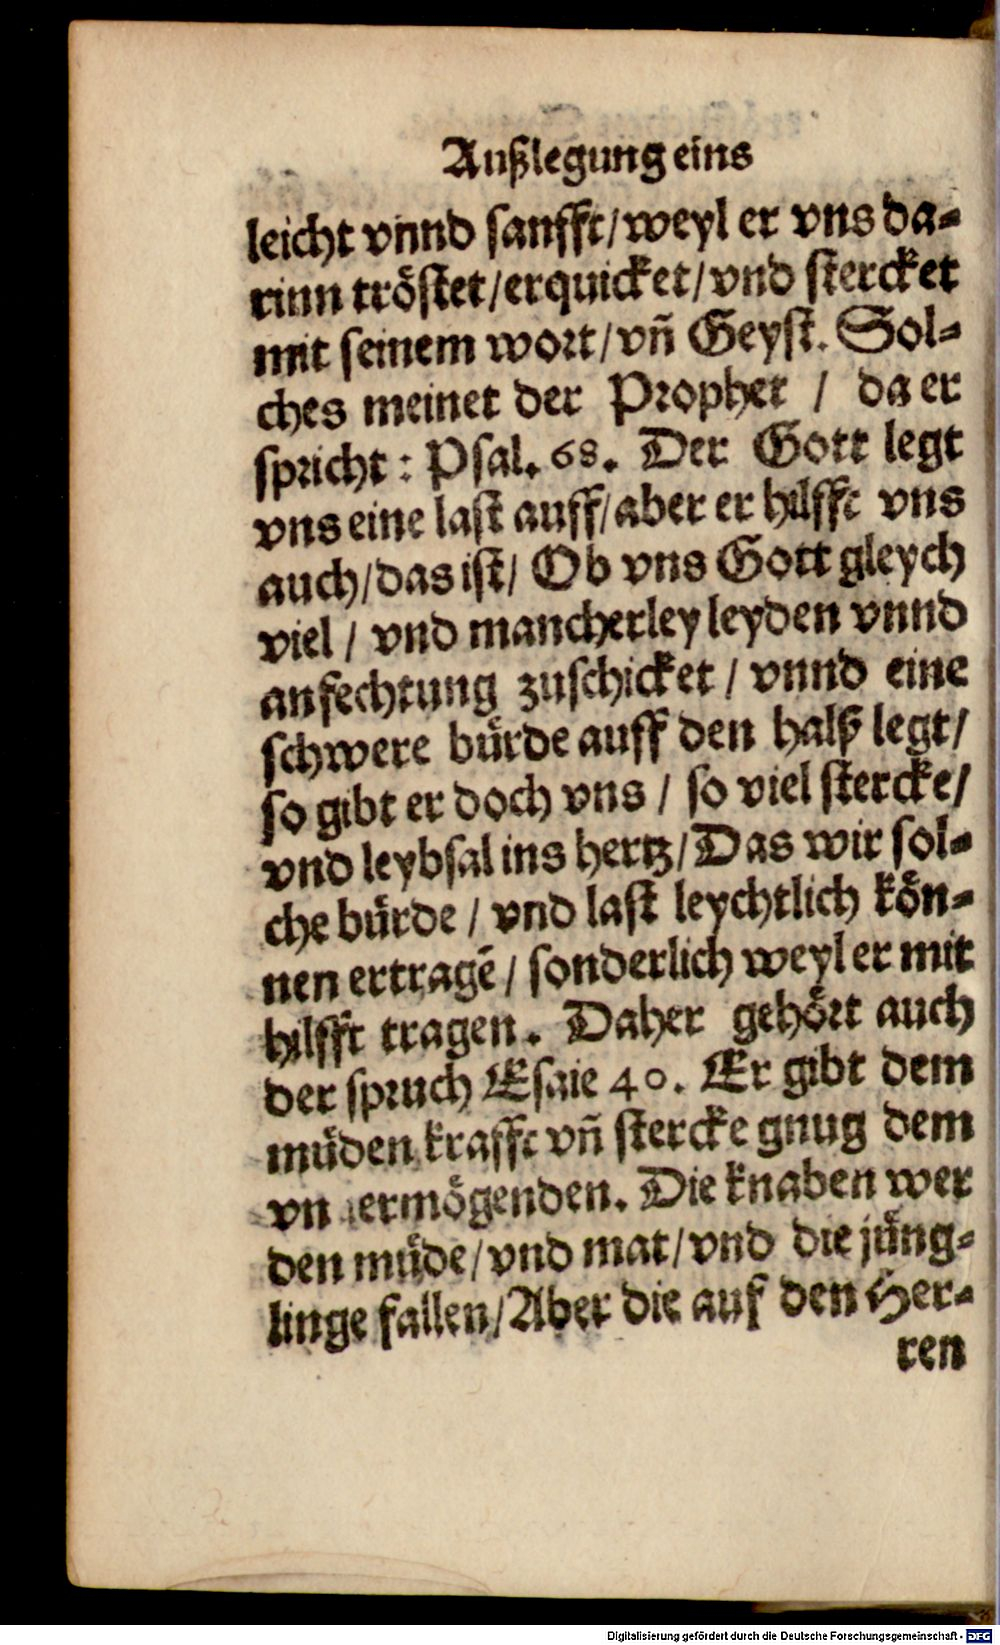 Außlegung eins
leicht vnnd sanfft/weyl er vns da-
rinn tröstet/erquicket/vnd stercket
mit seinem wort/vñ Geyst. Sol-
ches meinet der Prophet / da er
spricht: Psal. 68. Der Gott legt
vns eine last auff/aber er hilfft vns
auch/das ist/ Ob vns Gott gleych
viel / vnd mancherley leyden vnnd
anfechtung zuschicket / vnnd eine
schwere bürde auff den halß legt/
so gibt er doch vns / so viel stercke/
vnd leybsal ins hertz/Das wir sol-
che bürde / vnd last leychtlich kön-
nen ertragē/ sonderlich weyl er mit
hilfft tragen. Daher gehört auch
der spruch Esaie 40. Er gibt dem
müden krafft vñ stercke gnug dem
vn ermögenden. Die knaben wer
den müde/vnd mat/vnd die jüng-
linge fallen/Aber die auf den Her-
ren
Digitalisierung gefördert durch die Deutsche Forschungsgemeinschaft - DFG